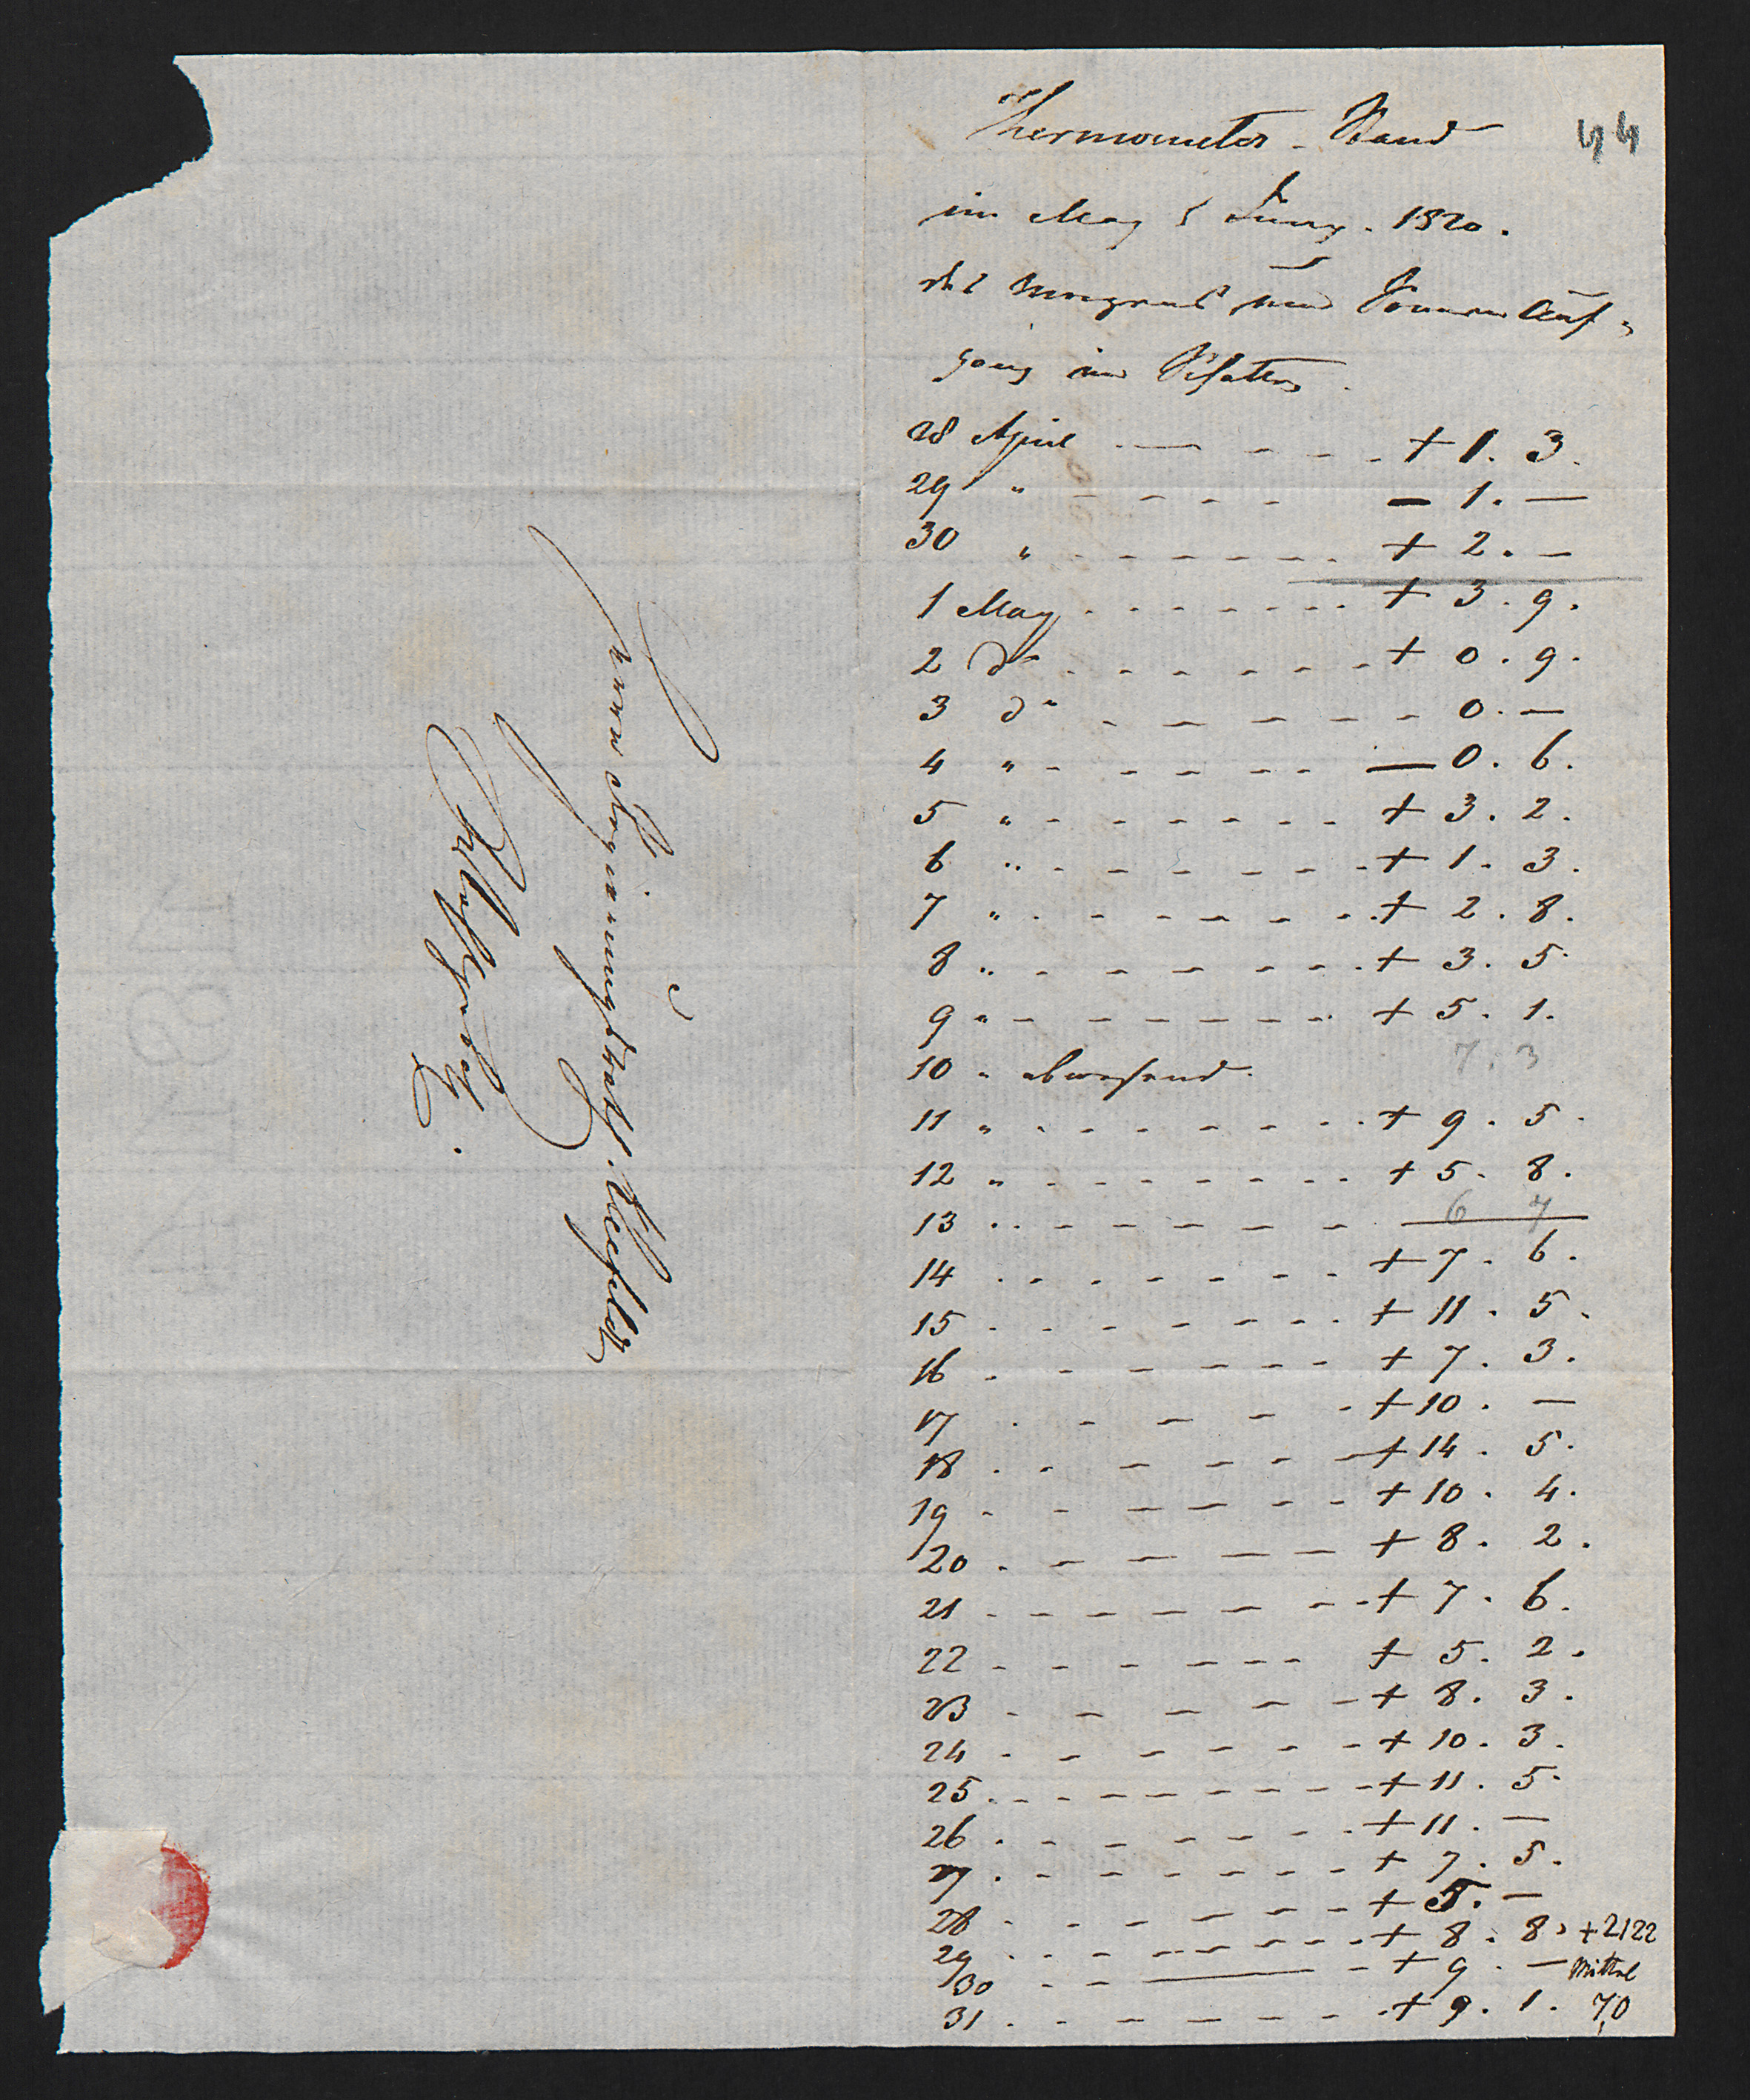 44
Thermometer-Stand
im May & Juny. 1820.
des morgens vor Sonnen Auf-
gang im Schatten.
28 April + 1. 3.
29 " - 1. —
30 " + 2. —
1 May + 3. 9.
2 do + 0. 9.
3 do 0. —
4 " — 0. 6.
5 " + 3. 2.
6 " + 1. 3.
7 " + 2. 8.
8 " + 3. 5.
9 " + 5. 1.
10 " abwesend. 7. 3
11 " + 9. 5.
12 " + 5. 8.
13 " 6 7
14 + 7. 6.
15 + 11. 5.
16 + 7. 3.
17 + 10. —
18 + 14. 5.
19 + 10. 4.
20 + 8. 2.
21 + 7. 6.
22 + 5. 2.
23 + 8. 3.
24 + 10. 3.
25 + 11. 5.
26 + 11. —
27 + 7. 5.
28 + 5. —
29 + 8. 8. +2122
30 + 9. — Mittel
31 + 9. 1. 7,0
Herrn Regierungsrath